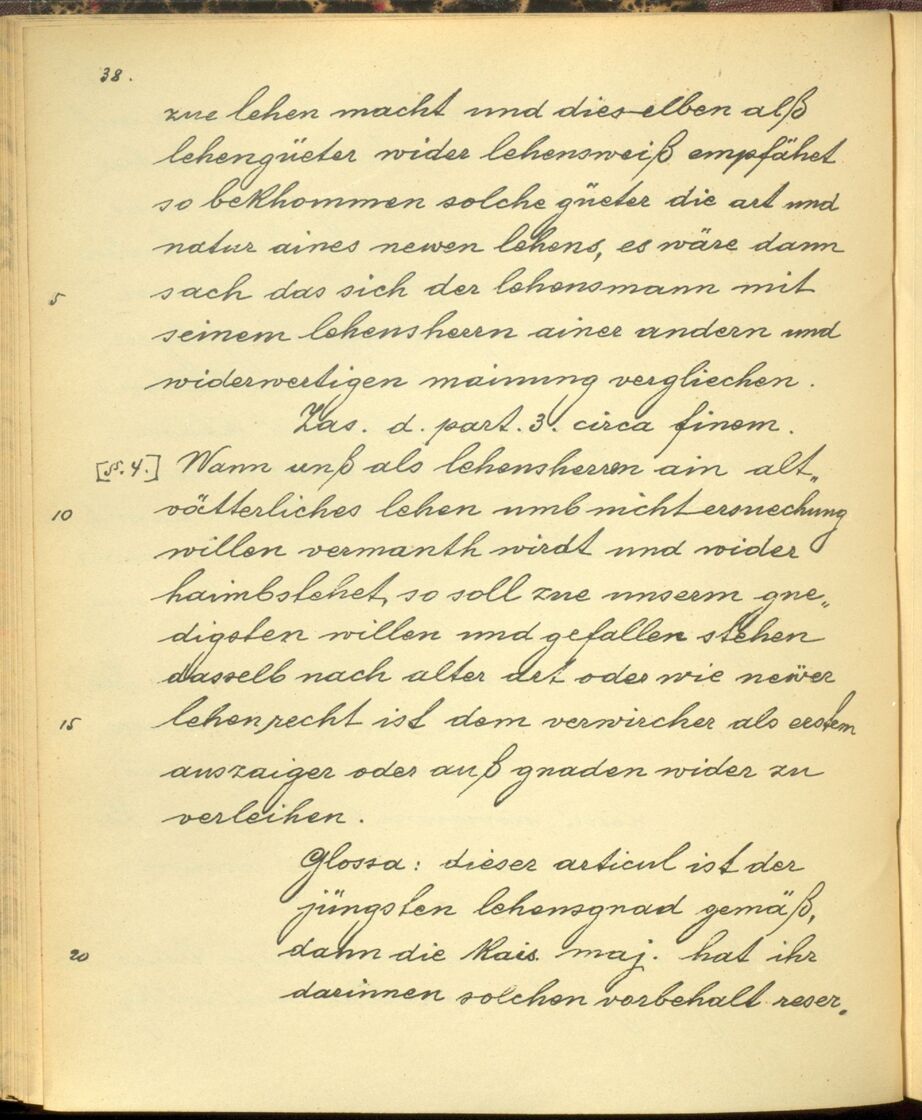 38.
zue lehen macht und dieselben alß
lehengüeter wider lehensweiß empfähet
so bekhommen solche güeter die art und
natur aines newen lehens, es wäre dann
5 sach das sich der lehensmann mit
seinem lehensherrn ainer andern und
widerwertigen mainung vergliechen.
Zas. d. part. 3. circa finem.
[§. 4.] Wann unß als lehensherren ain alt„
10 vätterliches lehen umb nicht ersuechung
willen vermanth wirdt und wider
haimbstehet, so soll zue unserm gne„
digsten willen und gefallen stehen
dasselb nach alter art oder wie neẅer
15 lehenrecht ist dem verwircher als erstem
auszaiger oder auß gnaden wider zu
verleihen.
Glossa: dieser articul ist der
jüngsten lehensgnad gemäß,
20 dann die Kais. maj. hat ihr
darinnen solchen vorbehalt reser„